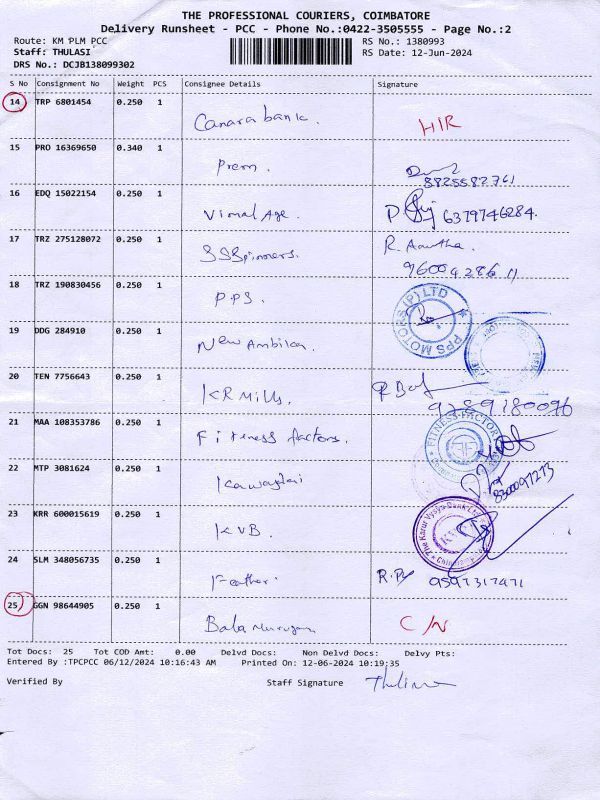 THE PROFESSIONAL COURIERS, COIMBATORE
Delivery Runsheet - PCC - Phone No.:0422-3505555 - Page No.:2
Route: KM PLM PCC
RS No.: 1380993
Staff: THULASI
RS Date: 12-Jun-2024
DRS No.: DCJB138099302
S No Consignment No Weight PCS Consignee Details Signature
14 TRP 6801454 0.250 1
Canara bank.
15 PRO 16369650 0.340 1
Prem.
8825582761
16 EDQ 15022154 0.250 1
Vimal Age. 6379746284.
17 TRZ 275128072 0.250 1
R.
SSpinners.
18 TRZ 190830456 0.250 1
PPS.
PPS MOTORS (P) LTD
19 DDG 284910 0.250 1
New
20 TEN 7756643 0.250 1
KR Mills. 9789180096
21 MAA 108353786 0.250 1
Fitness factors.
FITNESS FACTORS
22 MTP 3081624 0.250 1
23 KRR 600015619 0.250 1
KVB.
The Karur Vysya Bank Ltd
24 SLM 348056735 0.250 1
Feather.
25 GGN 98644905 0.250 1
Bala Murugan C/N
Tot Docs: 25 Tot COD Amt: 0.00 Delvd Docs: Non Delvd Docs: Delvy Pts:
Entered By :TPCPCC 06/12/2024 10:16:43 AM Printed On: 12-06-2024 10:19:35
Verified By Staff Signature